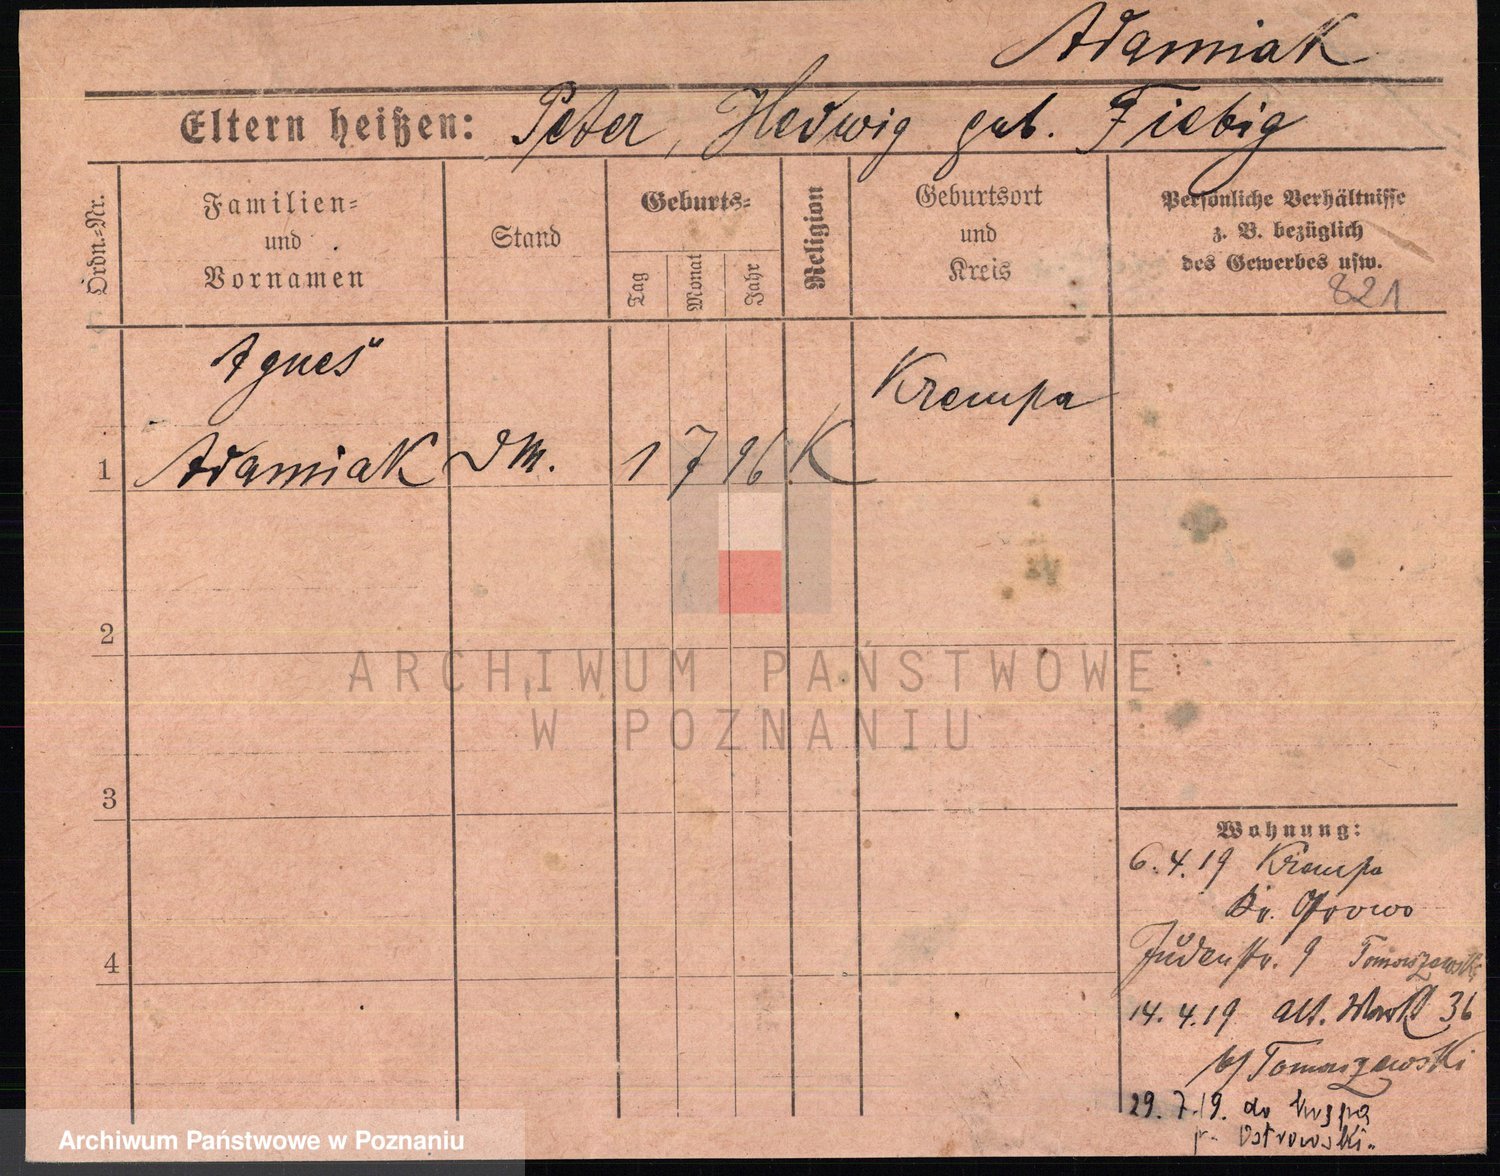 Adamiak
Eltern heißen: Peter, Hedwig geb. Fiebig
Ordn.=Nr.
Familien=
und
Vornamen
Stand
Geburts=
Tag
Monat
Jahr
Religion
Geburtsort
und
Kreis
Persönliche Verhältnisse
z. B. bezüglich
des Gewerbes usw.
821
Agnes
Krempa
1 Adamiak DM. 1 7 96 K
2
3
4
ARCHIWUM PAŃSTWOWE
W POZNANIU
Wohnung:
6.4.19 Krempa
Kr. Ostrowo
Judenstr. 9 Tomaszewski
14.4.19 Alt. Markt 36
b/ Tomaszewski
29.7.19. do
Ostrowski.
Archiwum Państwowe w Poznaniu